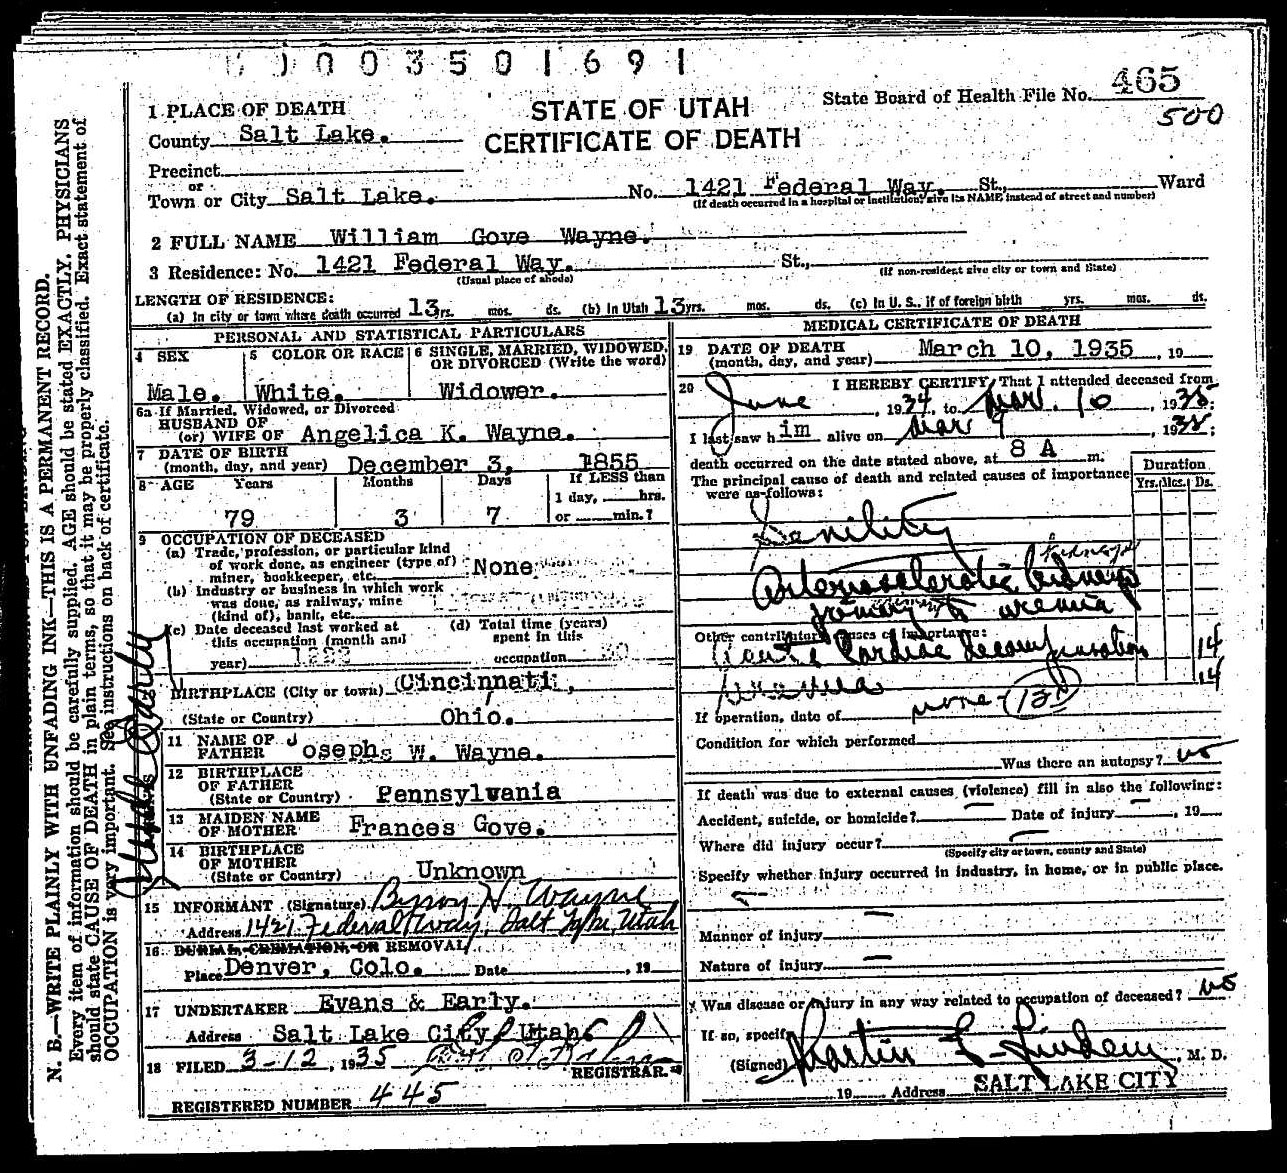 0 0 0 3 5 0 1 6 9 1
465
500
1 PLACE OF DEATH
STATE OF UTAH
State Board of Health File No.
County Salt Lake.
CERTIFICATE OF DEATH
Precinct
or
Town or City Salt Lake. No. 1421 Federal Way. St., Ward
(If death occurred in a hospital or institution, give its NAME instead of street and number)
2 FULL NAME William Gove Wayne.
3 Residence: No. 1421 Federal Way. St.,
(Usual place of abode) (If non-resident give city or town and State)
LENGTH OF RESIDENCE:
(a) In city or town where death occurred 13 yrs. mos. ds. (b) In Utah 13 yrs. mos. ds. (c) In U. S., if of foreign birth yrs. mos. ds.
PERSONAL AND STATISTICAL PARTICULARS
4 SEX
Male.
5 COLOR OR RACE
White.
6 SINGLE, MARRIED, WIDOWED, OR DIVORCED (Write the word)
Widower.
6a If Married, Widowed, or Divorced
HUSBAND OF
(or) WIFE OF Angelica K. Wayne.
7 DATE OF BIRTH
(month, day, and year) December 3, 1855
8 AGE Years Months Days If LESS than
1 day, hrs.
79 3 7 or min.?
9 OCCUPATION OF DECEASED
(a) Trade, profession, or particular kind
of work done, as engineer (type of)
miner, bookkeeper, etc. None
(b) Industry or business in which work
was done, as railway, mine
(kind of), bank, etc.
(c) Date deceased last worked at
this occupation (month and
year)
(d) Total time (years)
spent in this
occupation
BIRTHPLACE (City or town) Cincinnati,
(State or Country) Ohio.
11 NAME OF
FATHER Joseph W. Wayne.
12 BIRTHPLACE
OF FATHER
(State or Country) Pennsylvania
13 MAIDEN NAME
OF MOTHER Frances Gove.
14 BIRTHPLACE
OF MOTHER
(State or Country) Unknown
15 INFORMANT (Signature) Byron H. Wayne
Address 1421 Federal Way, Salt Lake, Utah
16 BURIAL, CREMATION, OR REMOVAL
Place Denver, Colo. Date , 19
17 UNDERTAKER Evans & Early.
Address Salt Lake City, Utah.
18 FILED 3-12, 1935
REGISTRAR.
REGISTERED NUMBER 445
MEDICAL CERTIFICATE OF DEATH
19 DATE OF DEATH
(month, day, and year) March 10, 1935, 19
20 I HEREBY CERTIFY, That I attended deceased from
June, 1934, to Mar. 10, 1935;
I last saw him alive on Mar 9, 1935;
death occurred on the date stated above, at 8 A m.
The principal cause of death and related causes of importance
were as follows:
Duration
Yrs. Mos. Ds.
Senility
Arteriosclerotic kidneys
primary to uremia
Other contributory causes of importance:
Acute Cardiac decompensation 14
Uremia 14
If operation, date of none 131
Condition for which performed
Was there an autopsy? no
If death was due to external causes (violence) fill in also the following:
Accident, suicide, or homicide? Date of injury , 19
Where did injury occur?
(Specify city or town, county and State)
Specify whether injury occurred in industry, in home, or in public place.
Manner of injury
Nature of injury
Was disease or injury in any way related to occupation of deceased? no
If so, specify
(Signed) Martin C. Lindem, M. D.
19 Address SALT LAKE CITY
N. B.—WRITE PLAINLY WITH UNFADING INK—THIS IS A PERMANENT RECORD.
Every item of information should be carefully supplied. AGE should be stated EXACTLY. PHYSICIANS
should state CAUSE OF DEATH in plain terms, so that it may be properly classified. Exact statement of
OCCUPATION is very important. See instructions on back of certificate.